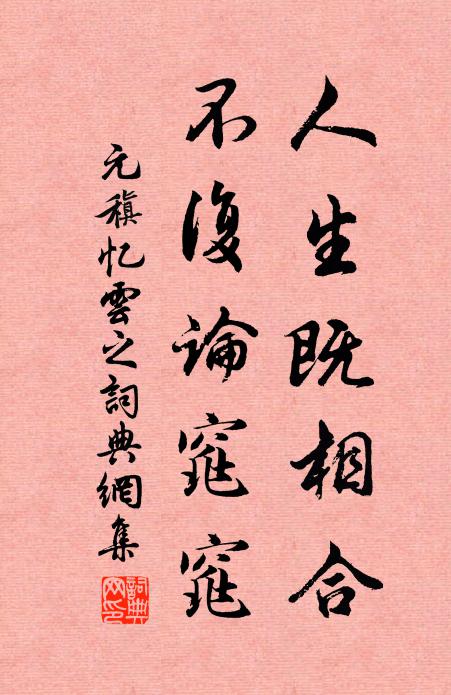 人生既相合
不復論窕窕
元稹忆雲之詞典網集
詞典网印